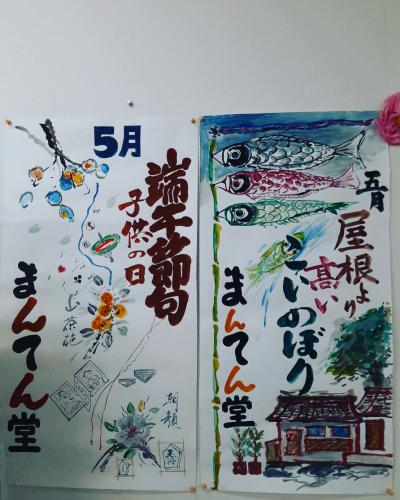 5月
端午節句
子供の日
山茶花
まんてん堂
朝顔
五月
屋根より
高い
こいのぼり
まんてん堂